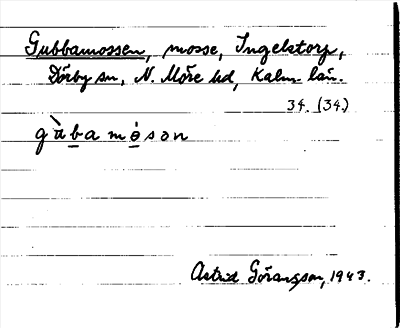 Gubbamossen, mosse, Ingelstorp,
Dörby sn, N. Möre hd, Kalm. län.
34. (34.)
gùbamosən
Astrid Göransson, 1943.